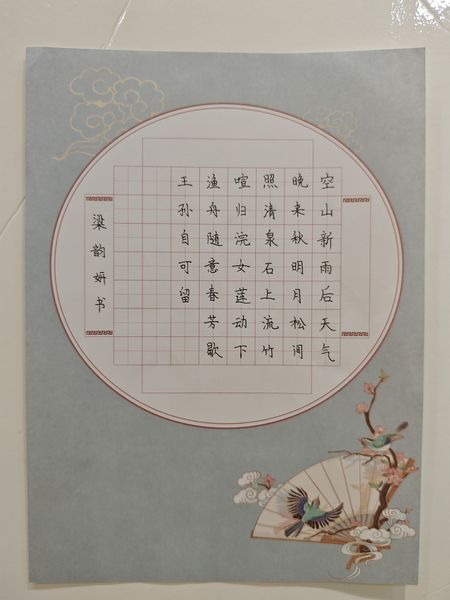 空山新雨后天气
晚来秋明月松间
照清泉石上流竹
喧归浣女莲动下
渔舟随意春芳歇
王孙自可留
梁韵妍书